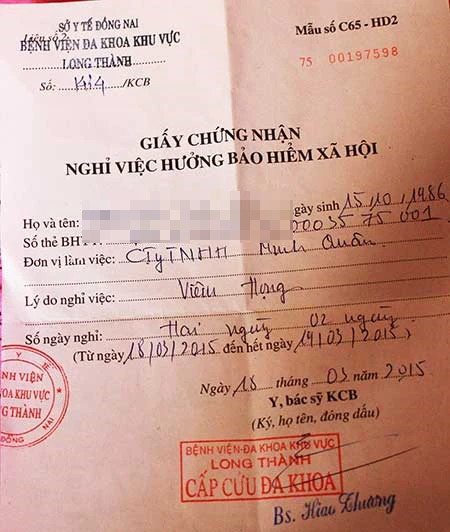 SỞ Y TẾ ĐỒNG NAI
Liên số 2
BỆNH VIỆN ĐA KHOA KHU VỰC
LONG THÀNH
Số: 414 /KCB
Mẫu số C65 - HD2
75 00197598
GIẤY CHỨNG NHẬN
NGHỈ VIỆC HƯỞNG BẢO HIỂM XÃ HỘI
Họ và tên: ngày sinh 15,10,1986
Số thẻ BH 0003575001
Đơn vị làm việc: CTy TNHH Minh Quân
Lý do nghỉ việc: Viêm Họng
Số ngày nghỉ: Hai ngày 02 ngày
(Từ ngày 18/03/2015 đến hết ngày 19/03/2015)
Ngày 18 tháng 03 năm 2015
Y, bác sỹ KCB
(Ký, họ tên, đóng dấu)
Y TẾ
BỆNH VIỆN
ĐA KHOA KHU VỰC
LONG THÀNH
ĐỒNG NAI
BỆNH VIỆN-ĐA KHOA KHU VỰC
LONG THÀNH
CẤP CỨU ĐA KHOA
Bs.